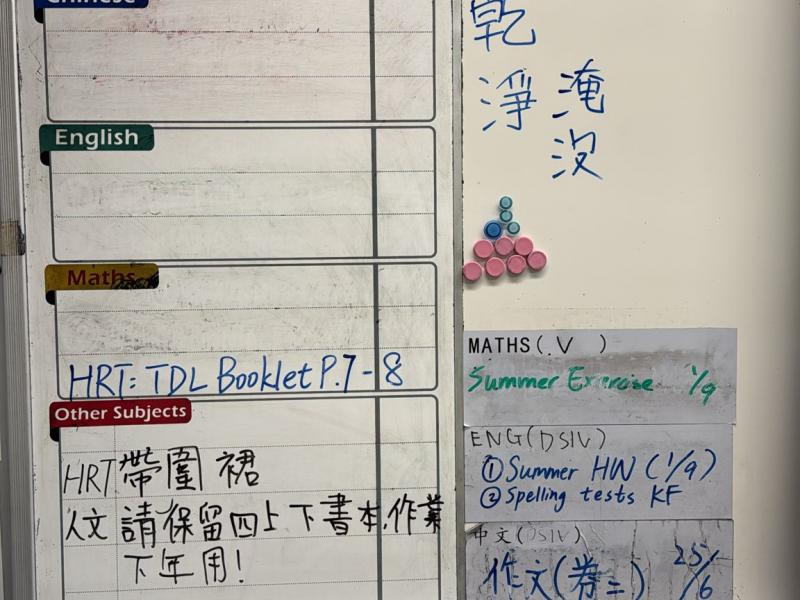 Chinese
English
Maths
HRT: TDL Booklet P.7-8
Other Subjects
HRT 帶圍裙
人文 請保留四上下書本,作業
下年用!
乾
淨
淹
沒
MATHS(.V )
Summer Exercise 1/9
ENG(DSIV)
①Summer HW (1/9)
②Spelling tests KF
中文(DSIV)
作文(券二) 25/6